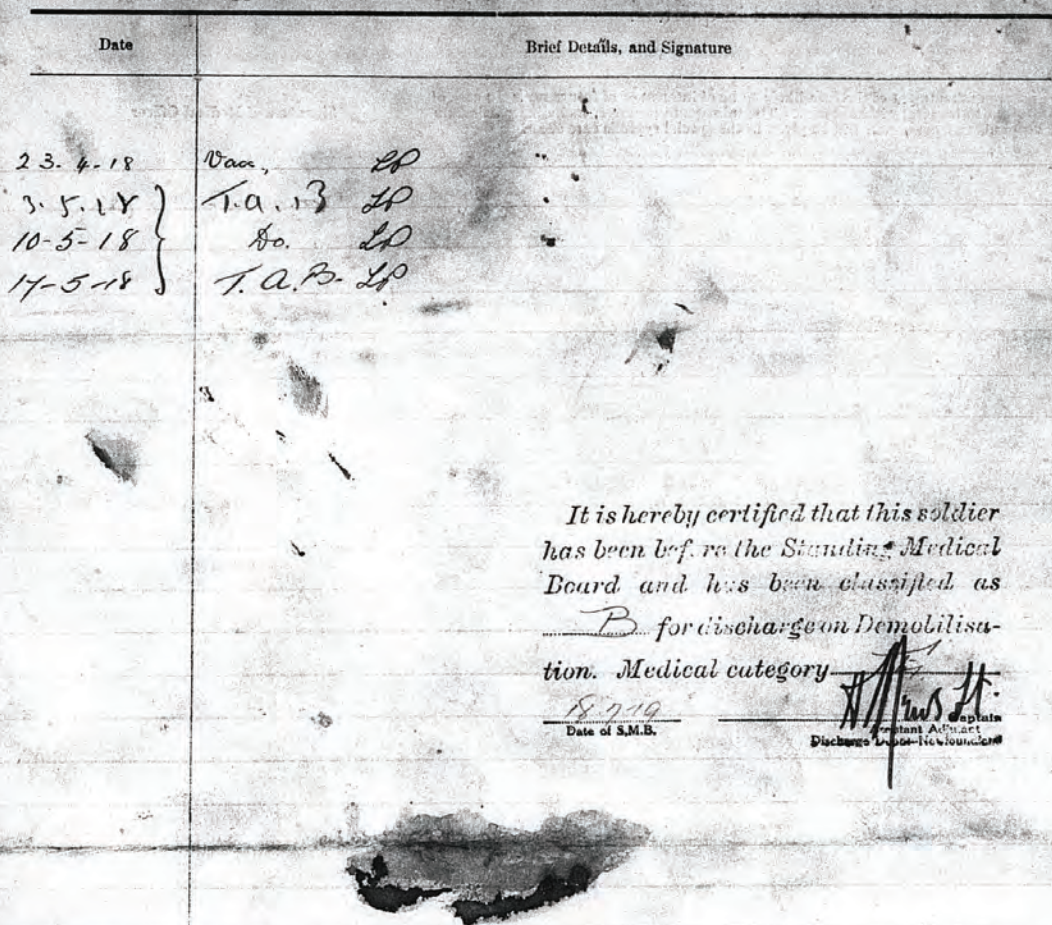 Date Brief Details, and Signature
23. 4. 18 Vacc, LP
3. 5. 18 T.A.B LP
10-5-18 Do. LP
17-5-18 T.A.B. LP
It is hereby certified that this soldier
has been before the Standing Medical
Board and has been classified as
B for discharge on Demobilisa-
tion. Medical category
18 7 19
Date of S.M.B.
Lt. Captain
Assistant Adjutant
Discharge Depot Newfoundland